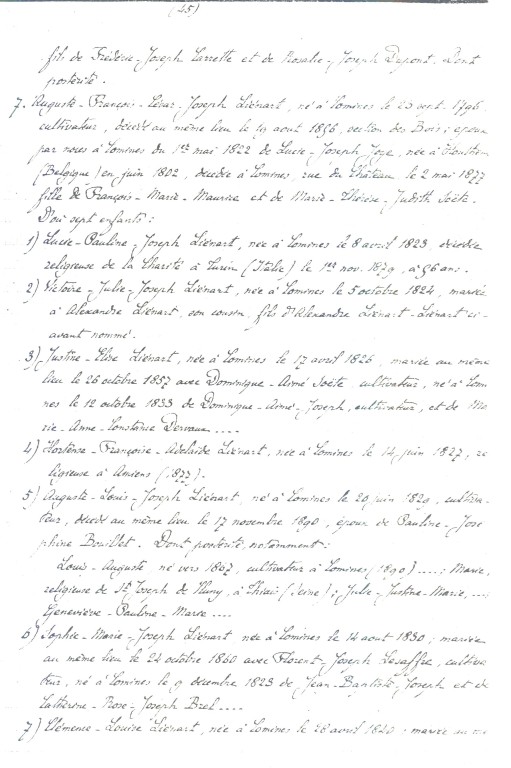 (25)
fils de Frédéric-Joseph Carrette et de Rosalie-Joseph Dupont. Dont
postérité.
7. Auguste-François-César-Joseph Liénart, né à Comines le 23 sept. 1796
cultivateur, décédé au même lieu le 19 aout 1856, section des Bois; époux
par noces à Comines du 1er mai 1822 de Lucie-Joseph Joye, née à Houthem
(Belgique) en juin 1802, décédée à Comines, rue du Château le 2 mai 1877
fille de François-Marie-Maurice et de Marie-Thérèse-Judith Soëte.
D'où sept enfants :
1) Lucie-Pauline-Joseph Liénart, née à Comines le 8 avril 1823 décédée
religieuse de la Charité à Turin (Italie) le 1er nov. 1879, à 56 ans.
2) Victoire-Julie-Joseph Liénart, née à Comines le 5 octobre 1824, mariée
à Alexandre Liénart, son cousin, fils d'Alexandre Liénart-Liénart ci-
avant nommé.
3) Justine-Elise Liénart, née à Comines le 17 avril 1826, mariée au même
lieu le 26 octobre 1857 avec Dominique-Aimé Soëte, cultivateur, né à Comi
nes le 12 octobre 1833 de Dominique-Aimé-Joseph, cultivateur, et de Ma
rie-Anne-Constance Dervaux ....
4) Hortense-Françoise-Adélaïde Liénart, née à Comines le 14 juin 1827, re
ligieuse à Amiens (1877).
5) Auguste-Louis-Joseph Liénart, né à Comines le 20 juin 1829, cultiva
teur, décédé au même lieu le 17 novembre 1890, époux de Pauline-José
phine Bouillet. Dont postérité, notamment :
Louis-Auguste né vers 1867, cultivateur à Comines (1890) ....; Marie,
religieuse de St Joseph de Cluny, à Thiais (Seine); Julie-Justine-Marie, ...;
Geneviève-Pauline-Marie ....
6) Sophie-Marie-Joseph Liénart née à Comines le 14 aout 1830; mariée
au même lieu le 24 octobre 1860 avec Florent-Joseph Lesaffre, cultiva
teur, né à Comines le 9 décembre 1823 de Jean-Baptiste-Joseph et de
Catherine-Rose-Joseph Brel ....
7) Clémence-Louise Liénart, née à Comines le 28 avril 1840; mariée au